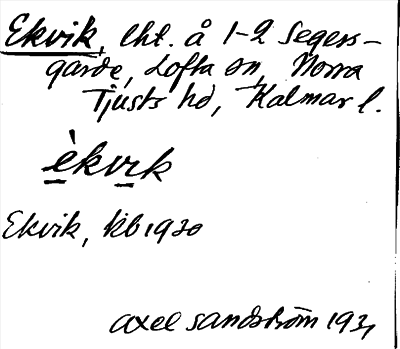 Ekvik, lht. å 1-2 Segers-
garde, Lofta sn, Norra
Tjusts hd, Kalmar l.
èkvik
Ekvik, kb 1920
Axel Sandström 1931